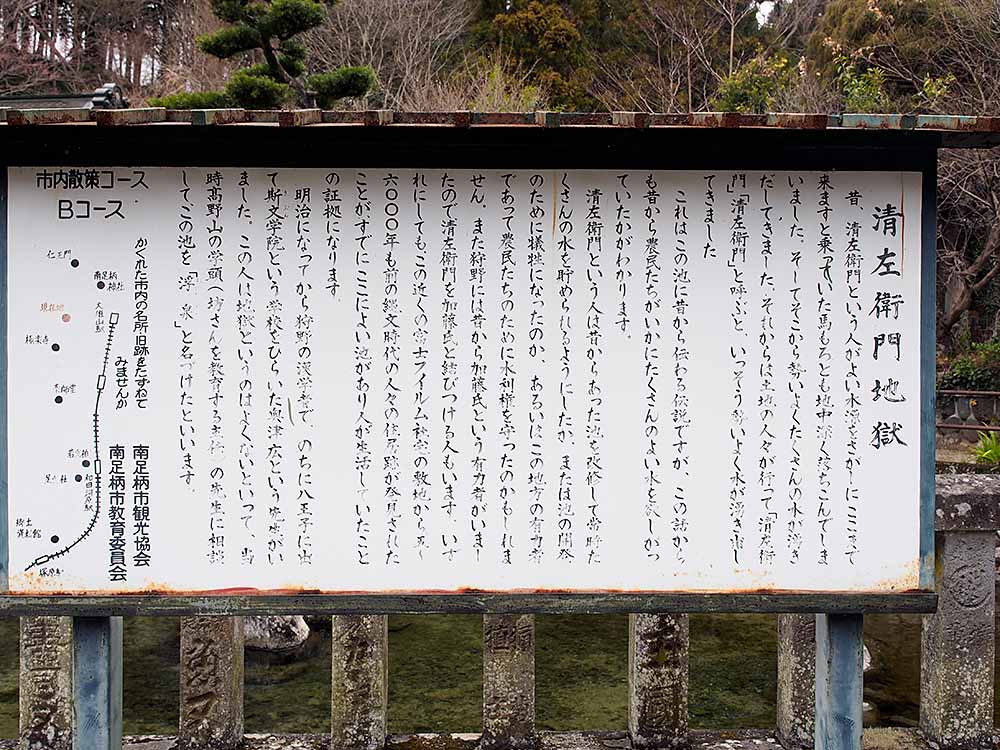 清左衛門地獄
昔、清左衛門という人がよい水源をさがしにここまで
来ますと乗っていた馬もろとも地中深く落ちこんでしま
いました。そしてそこから勢いよくたくさんの水が湧き
だしてきました。それからは土地の人々が行って「清左衛
門」「清左衛門」と呼ぶと、いっそう勢いよく水が湧き出し
てきました
これはこの池に昔から伝わる伝説ですが、この話から
も昔から農民たちがいかにたくさんのよい水を欲しがっ
ていたかがわかります。
清左衛門という人は昔からあった池を改修して常時た
くさんの水を貯められるようにしたか、または池の開発
のために犠牲になったのか、あるいはこの地方の有力者
であって農民たちのために水利権を守ったのかもしれま
せん。また狩野には昔から加藤氏という有力者がいまし
たので清左衛門を加藤氏と結びつける人もいます。いず
れにしてもこの近くの富士フイルム社宅の敷地から五〜
六〇〇〇年も前の縄文時代の人々の住居跡が発見された
ことがすでにここによい池があり人が生活していたこと
の証拠になります。
明治になってから狩野の漢学者で、のちに八王子に出
て斯文学院という学校をひらいた奥津広という先生がい
ました。この人は地獄というのはよくないといって、当
時高野山の学頭(坊さんを教育する主任)の先生に相談
して、この池を「澤泉」と名づけたといいます。
市内散策コース
Bコース
かくれた市内の名所旧蹟をたずねて
みませんか
南足柄市観光協会
南足柄市教育委員会
仁王門
南足柄神社
大雄山駅
現在地
極楽寺
和田河原駅
郷土資料館
塚原駅